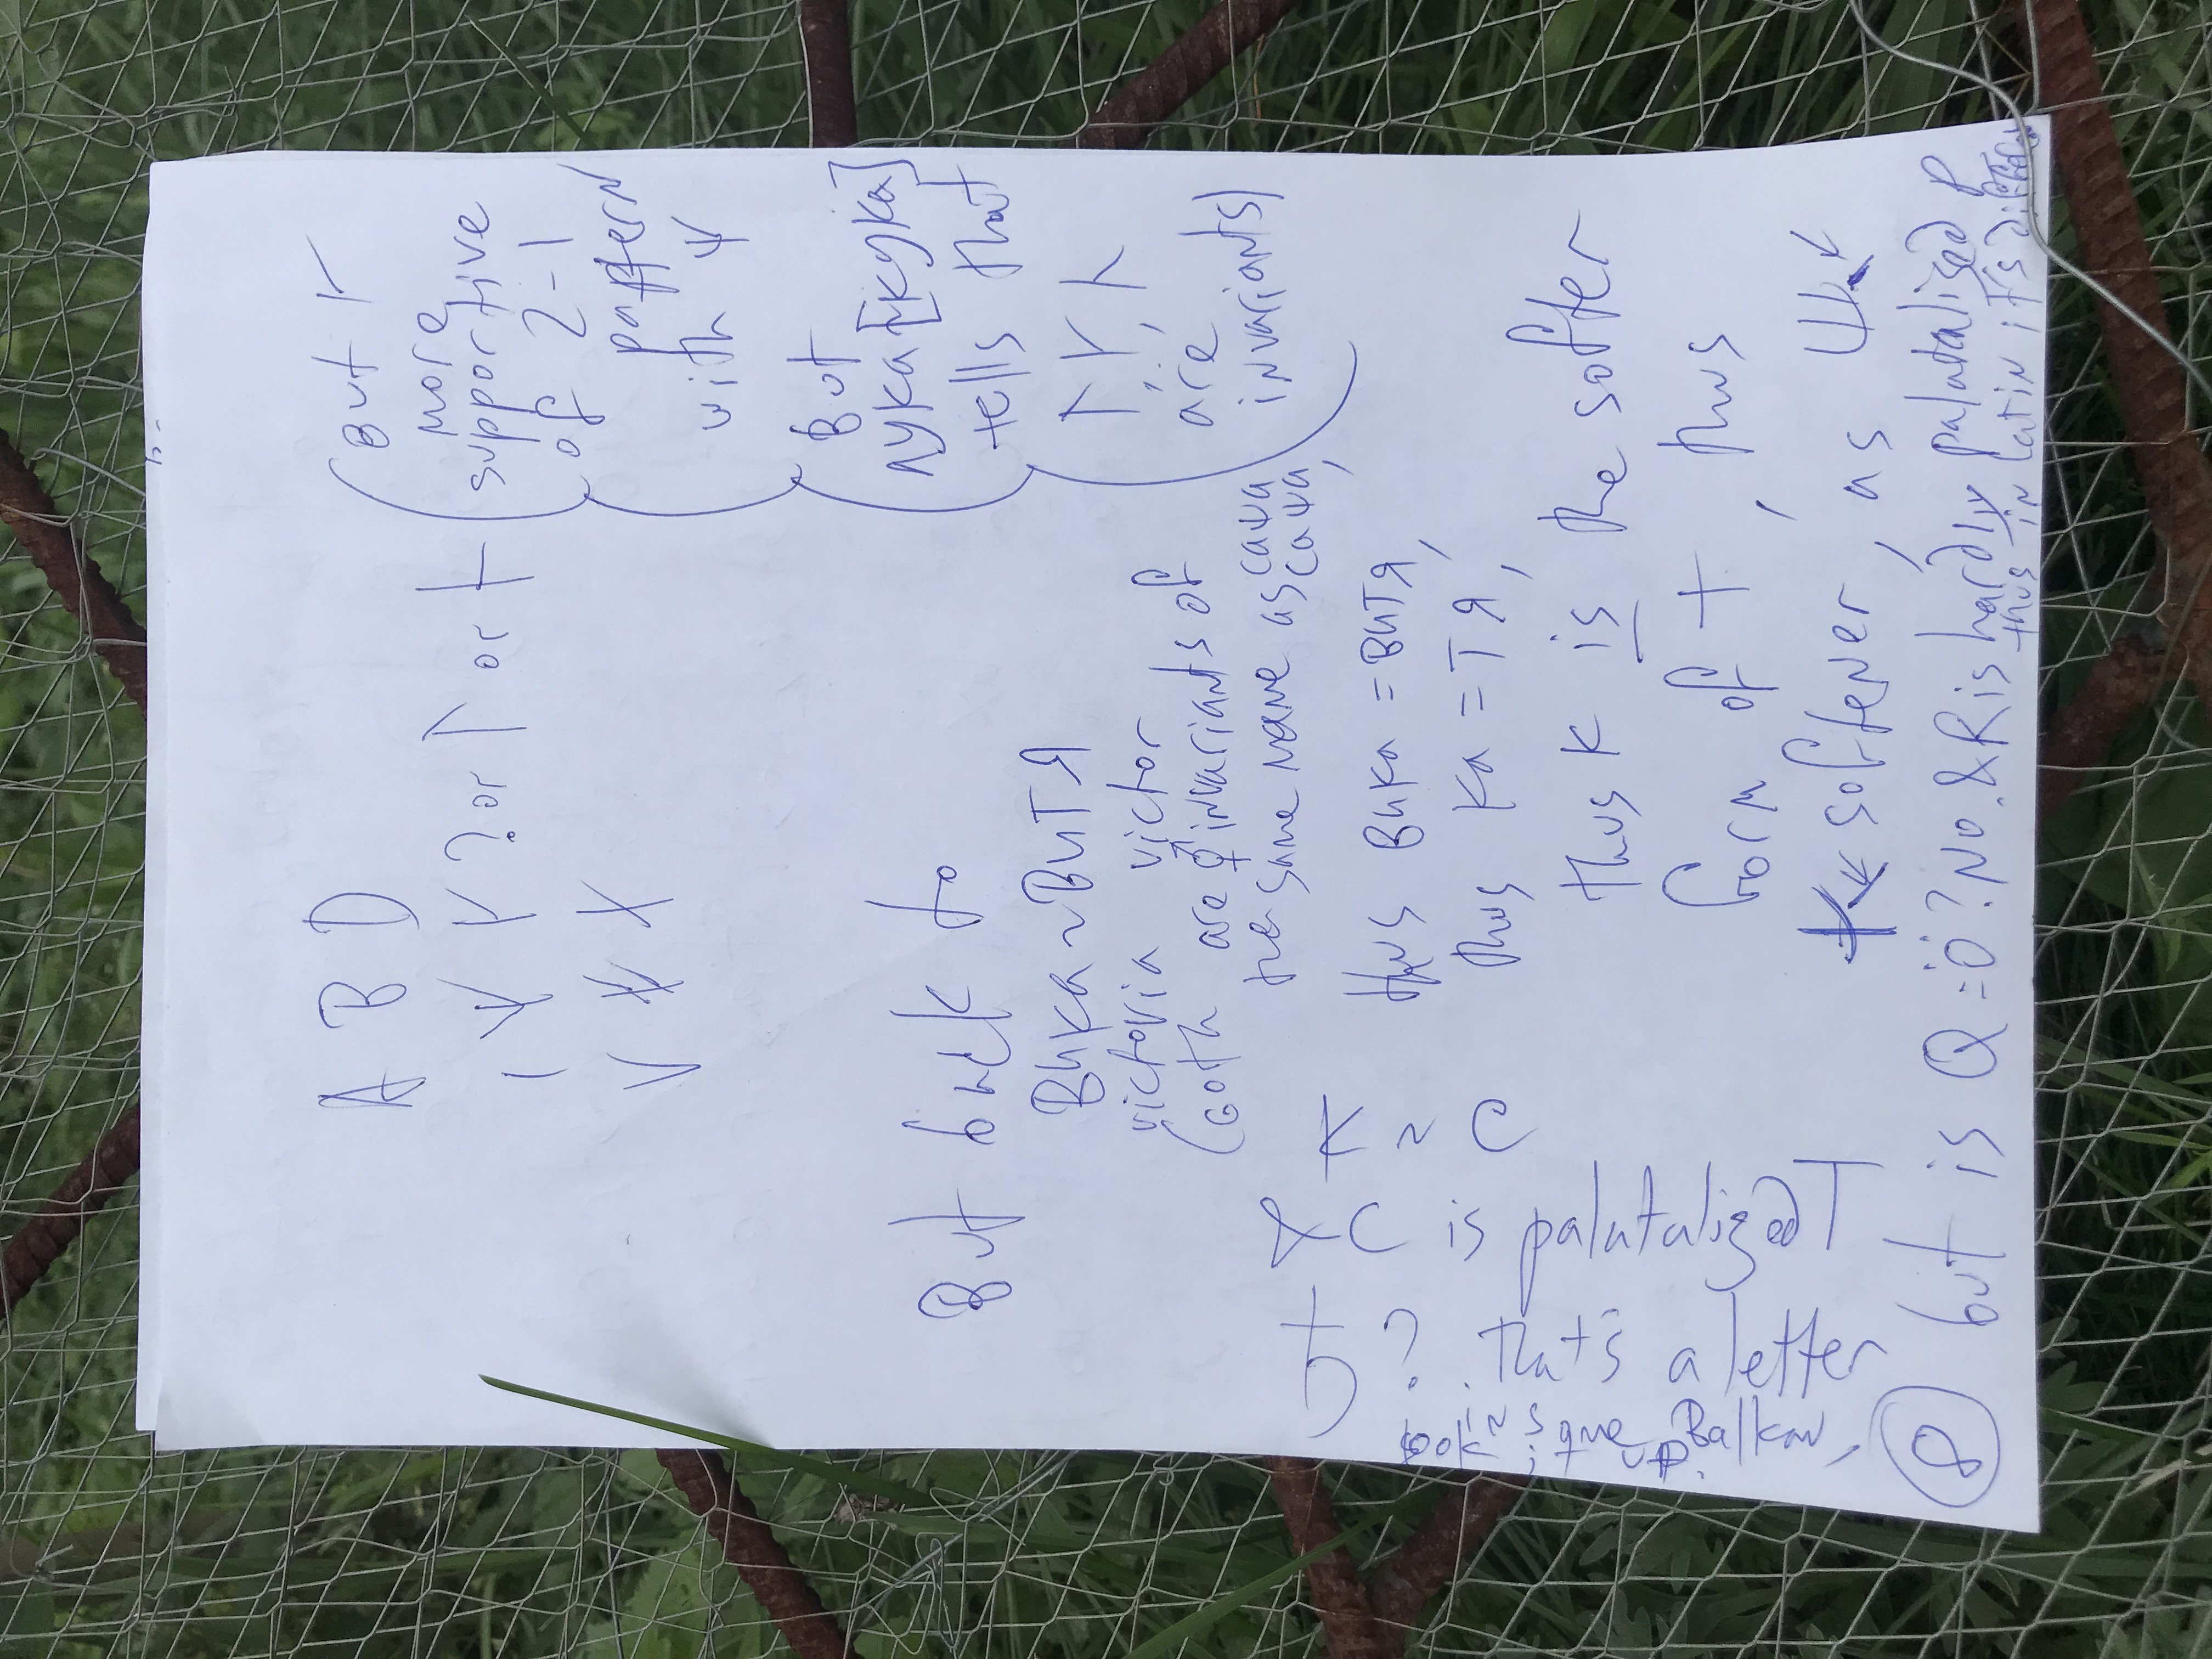 A B D
ᛁ Ψ ᚴ ? or ᛐ or ⊢
V X
(But ᚴ
more
supportive
of 2-1
pattern
with Ψ
But
лука [кука]
tells that
ᛐ, ᚴ, ᛣ
are
invariants)
But back to
Вика ~ Витя
victoria victor
(both are ⚥ invariants of
the same name as саша
саша,
thus вика = витя,
thus ка = тя,
thus K is the softer
form of T, thus
softener, as
K ~ C
& C is palatalized T
ђ ? that's a letter
some Balkan,
8
but is Q = ö? No. & R is hardly palatalised P
thus in latin it's different